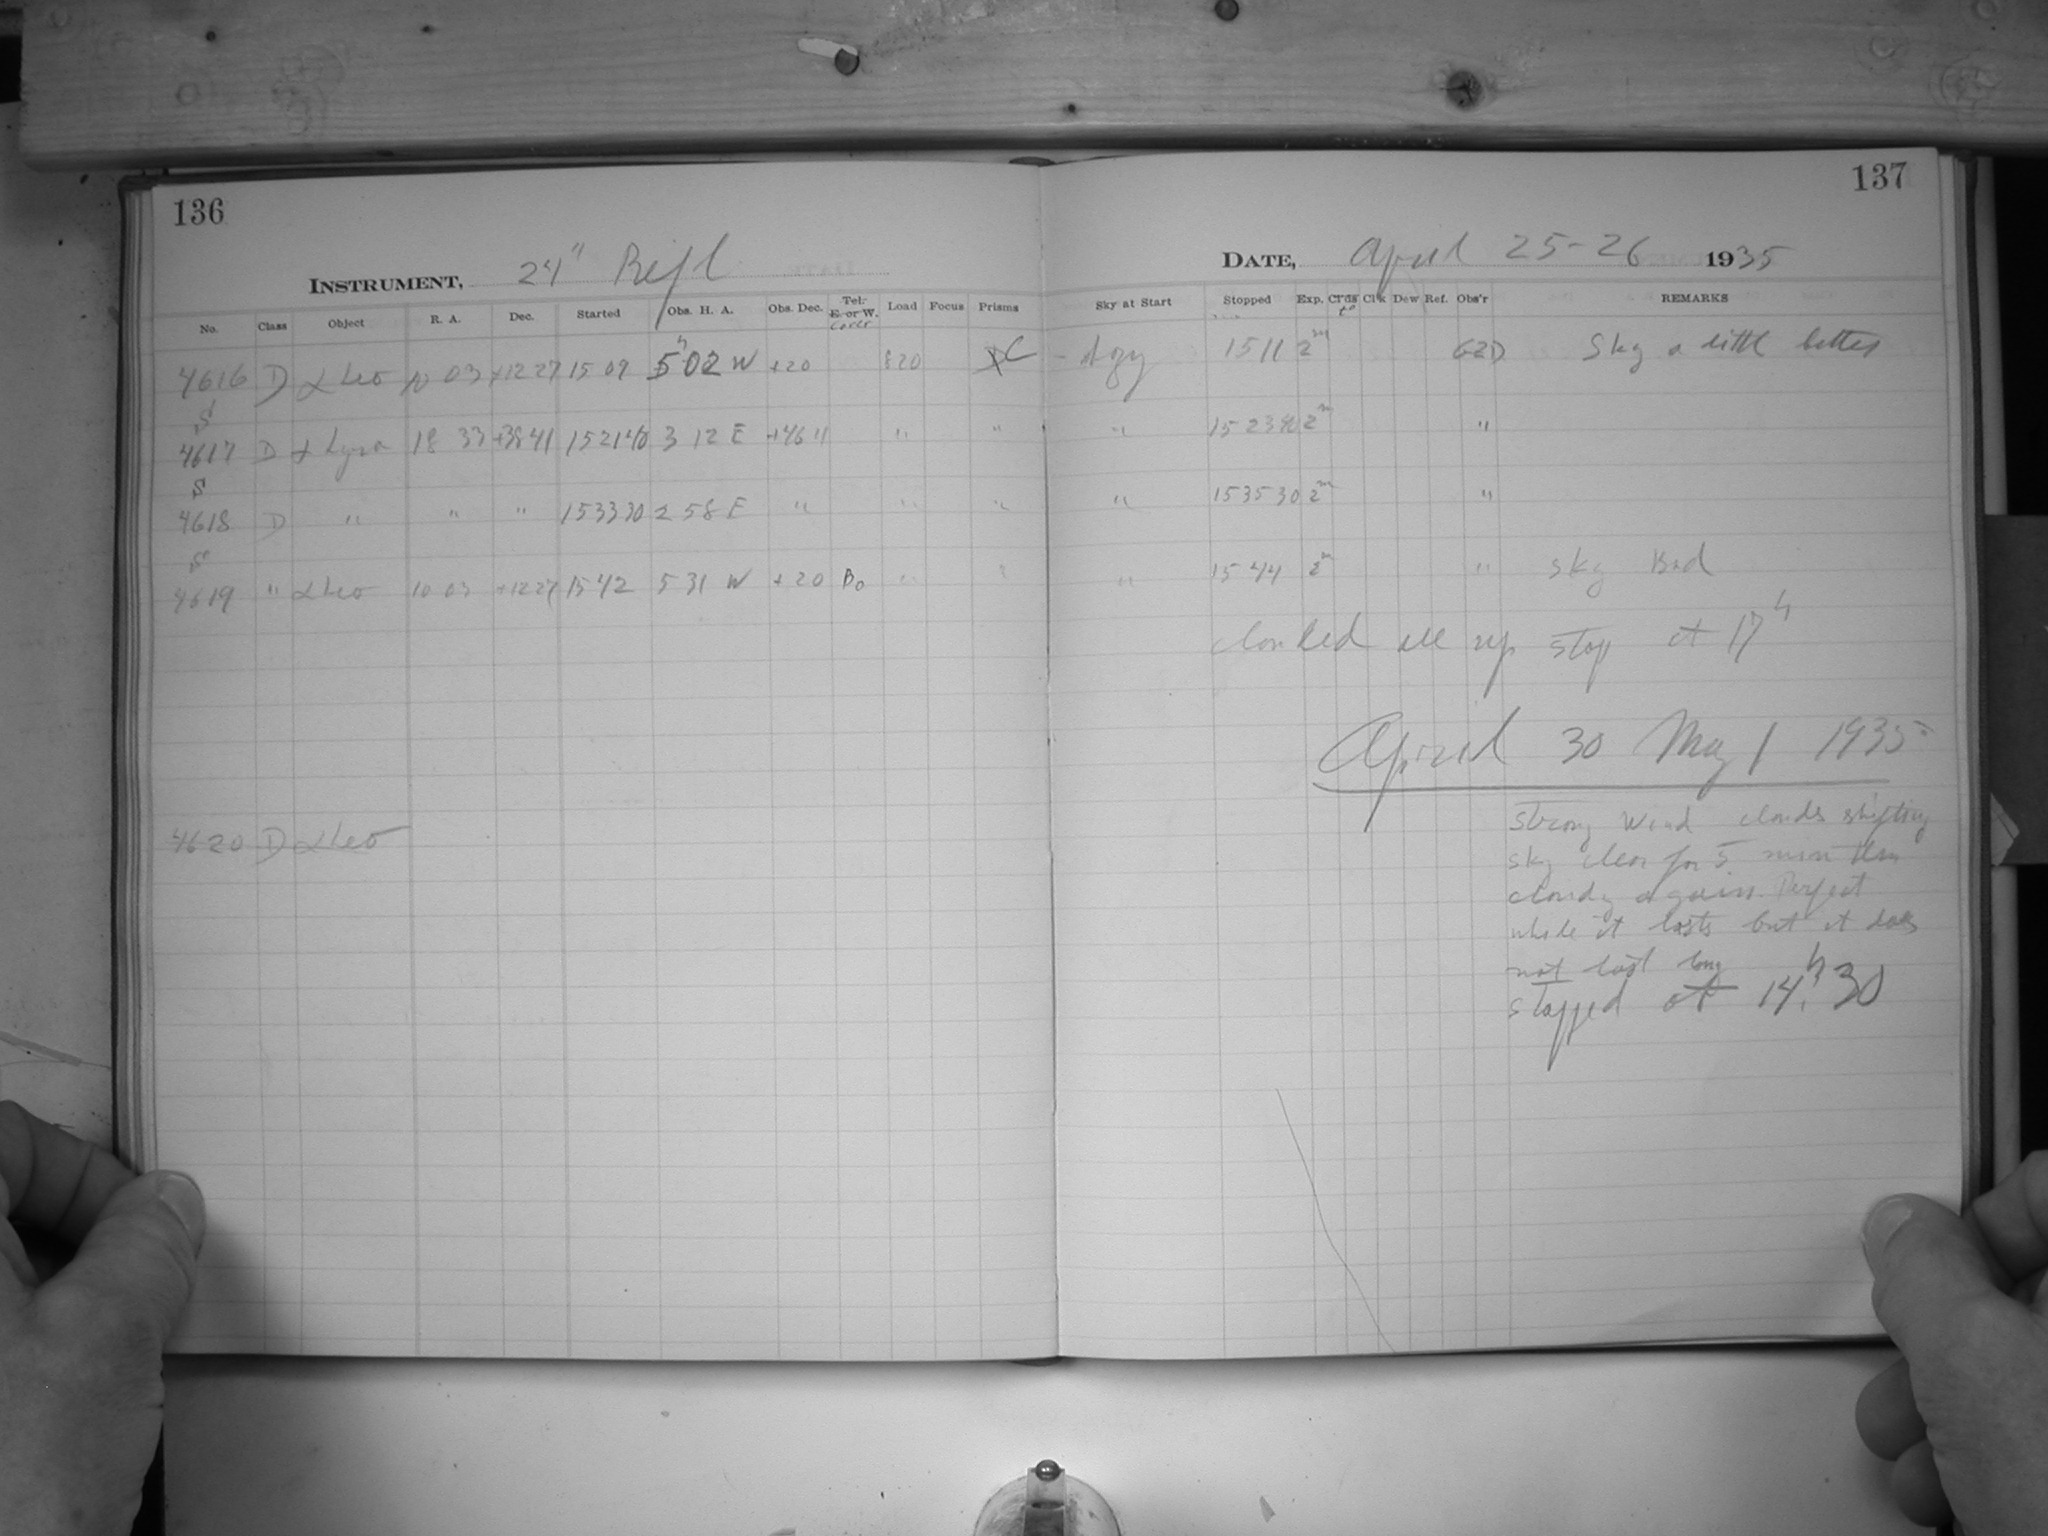 136
137
INSTRUMENT, 24" Refl
DATE, April 25-26 1935
No. Class Object R. A. Dec. Started Obs. H. A. Obs. Dec. Tel. E. or W. cover Load Focus Prisms Sky at Start Stopped Exp. Cl'ds Cl'k Dew Ref. Obs'r REMARKS
4616 D α Leo 10 03 +12 27 15 09 5h 02 W +20 820 C 15 11 2m GZD Sky a little better
S
4617 D α Lyra 18 33 +38 41 15 21 40 3 12 E " " " 15 23 40 2m "
S
4618 D " " " 15 33 30 2 58 E " " " " 15 35 30 2m "
S
4619 " α Leo 10 03 +12 27 15 42 5 31 W +20 Do " " " 15 44 2m " Sky Bad
clouded all up stop at 17h
April 30 May 1 1935
4620 D α Leo
Strong wind clouds shifting
sky clear for 5 min then
cloudy again. Perfect
while it lasts but it does
not last long
stopped at 14h 30